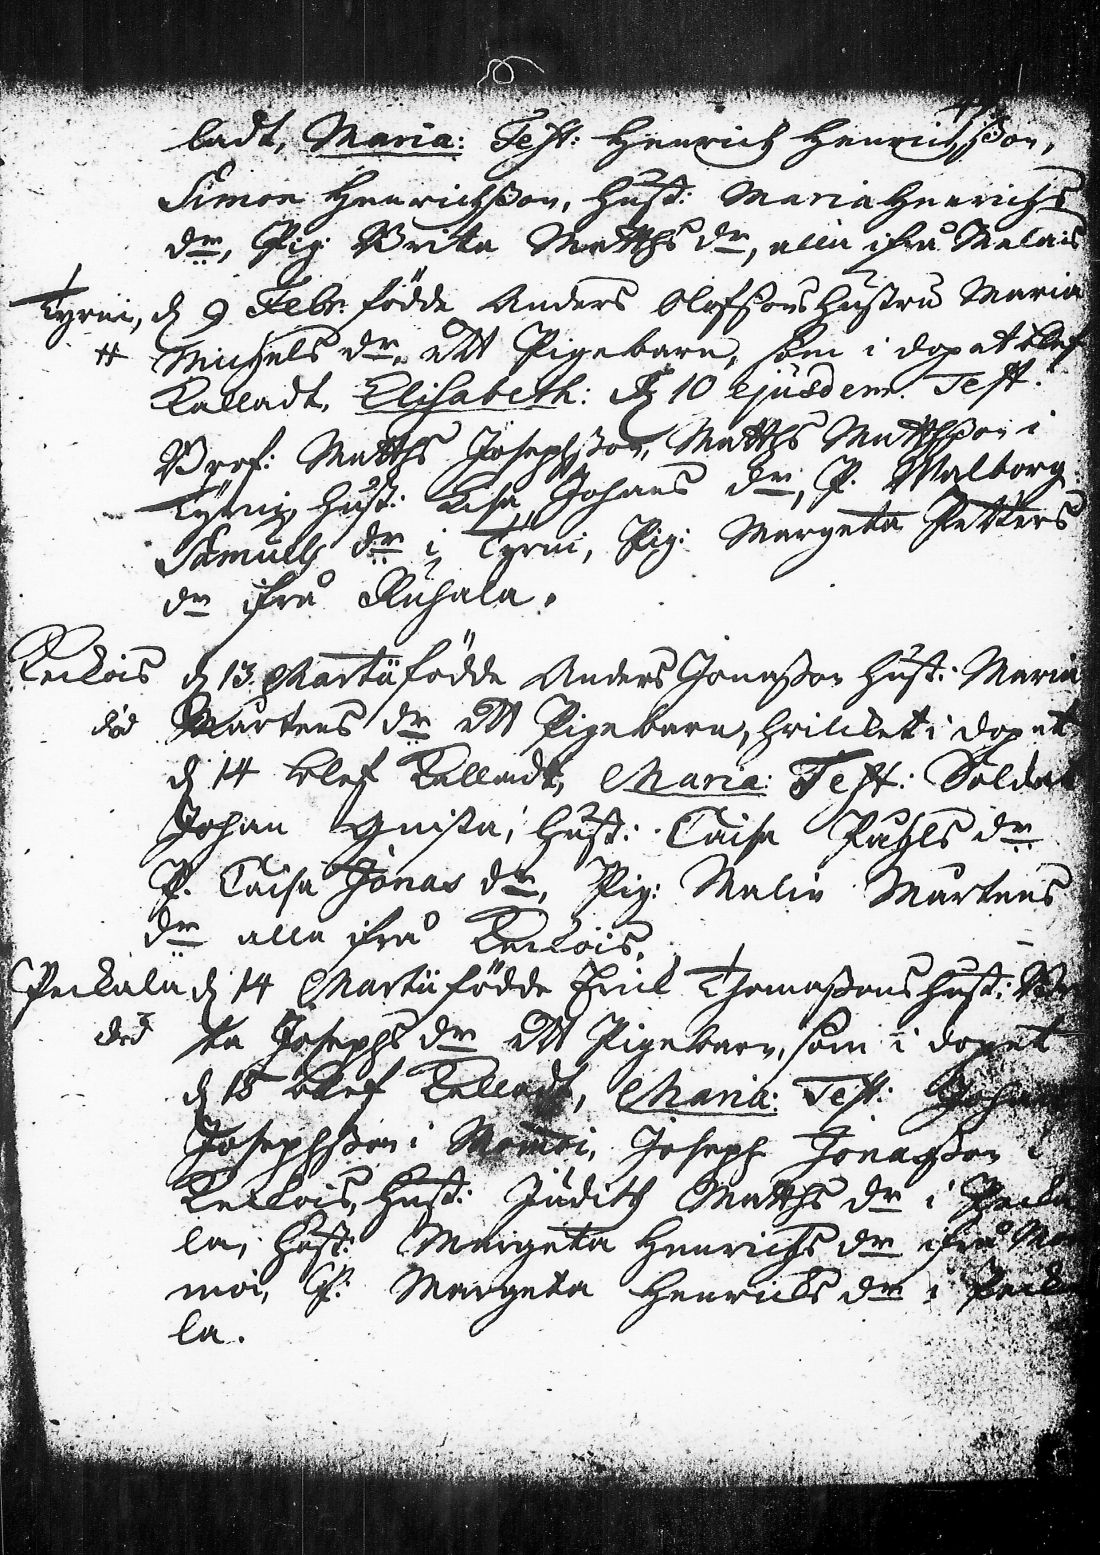 ladt, Maria: Test: Henrich Henrichsson,
Simon Henrichsson, Hust: Maria Henrichs
dr, Pig: Brita Matths dr, alla ifrå Malais
Tyrni, d 9 Febr. födde Anders Olofssons Hustru Maria
# Michels dr, ett Pigebarn, som i dopet blef
Kalladt, Elisabeth: d 10 ejusdem. Test:
Matths Josephsson, Matths Matthsson i
Tyrni, Hust: Lisa Johans dr, P. Walborg
Samuels dr i Tyrni, Pig: Margeta Petters
dr ifrå Ruhala.
Keckois d 13 Martii födde Anders Jonasson Hust: Maria
död Mårtens dr ett Pigebarn, hvilket i dopet
d 14 blef Kalladt, Maria: Test: Soldat
Johan Gnista, Hust: Caisa Påhls dr
P. Caisa Jonas dr, Pig: Malin Mårtens
dr alla ifrå Keckois.
Peckala d 14 Martii födde Erik Thomassons Hust: Bri
död ta Josephs dr ett Pigebarn, som i dopet
d 15 blef Kalladt, Maria: Test: Johan
Josephsson i Momoi, Joseph Jonasson i
Keckois, Hust: Judith Matths dr i Pecka
la, Hust: Margeta Henrichs dr ifrå Mo
moi, P: Margeta Henricks dr i Pecka
la.